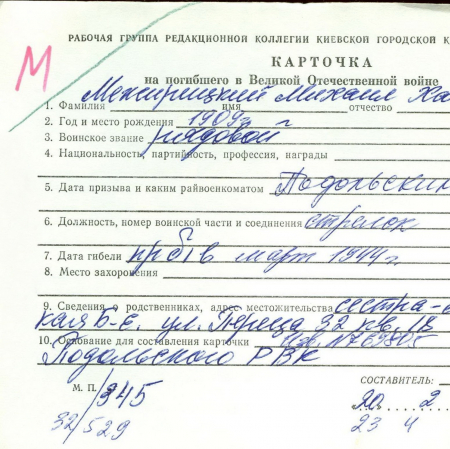 РАБОЧАЯ ГРУППА РЕДАКЦИОННОЙ КОЛЛЕГИИ КИЕВСКОЙ ГОРОДСКОЙ К
М
КАРТОЧКА
на погибшего в Великой Отечественной войне
Межирицкий Михаил Ха
1. Фамилия имя отчество
2. Год и место рождения 1909 г
3. Воинское звание рядовой
4. Национальность, партийность, профессия, награды
5. Дата призыва и каким райвоенкоматом Подольским
6. Должность, номер воинской части и соединения стрелок
7. Дата гибели пр б/в март 1944 г.
8. Место захоронения
9. Сведения о родственниках, адрес местожительства сестра-
кая Б-Е. ул. Переца 32 кв. 18
10. Основание для составления карточки Изв. №69805
Подольского РВК
М. П. 945
СОСТАВИТЕЛЬ:
32/529
20 2
23 4